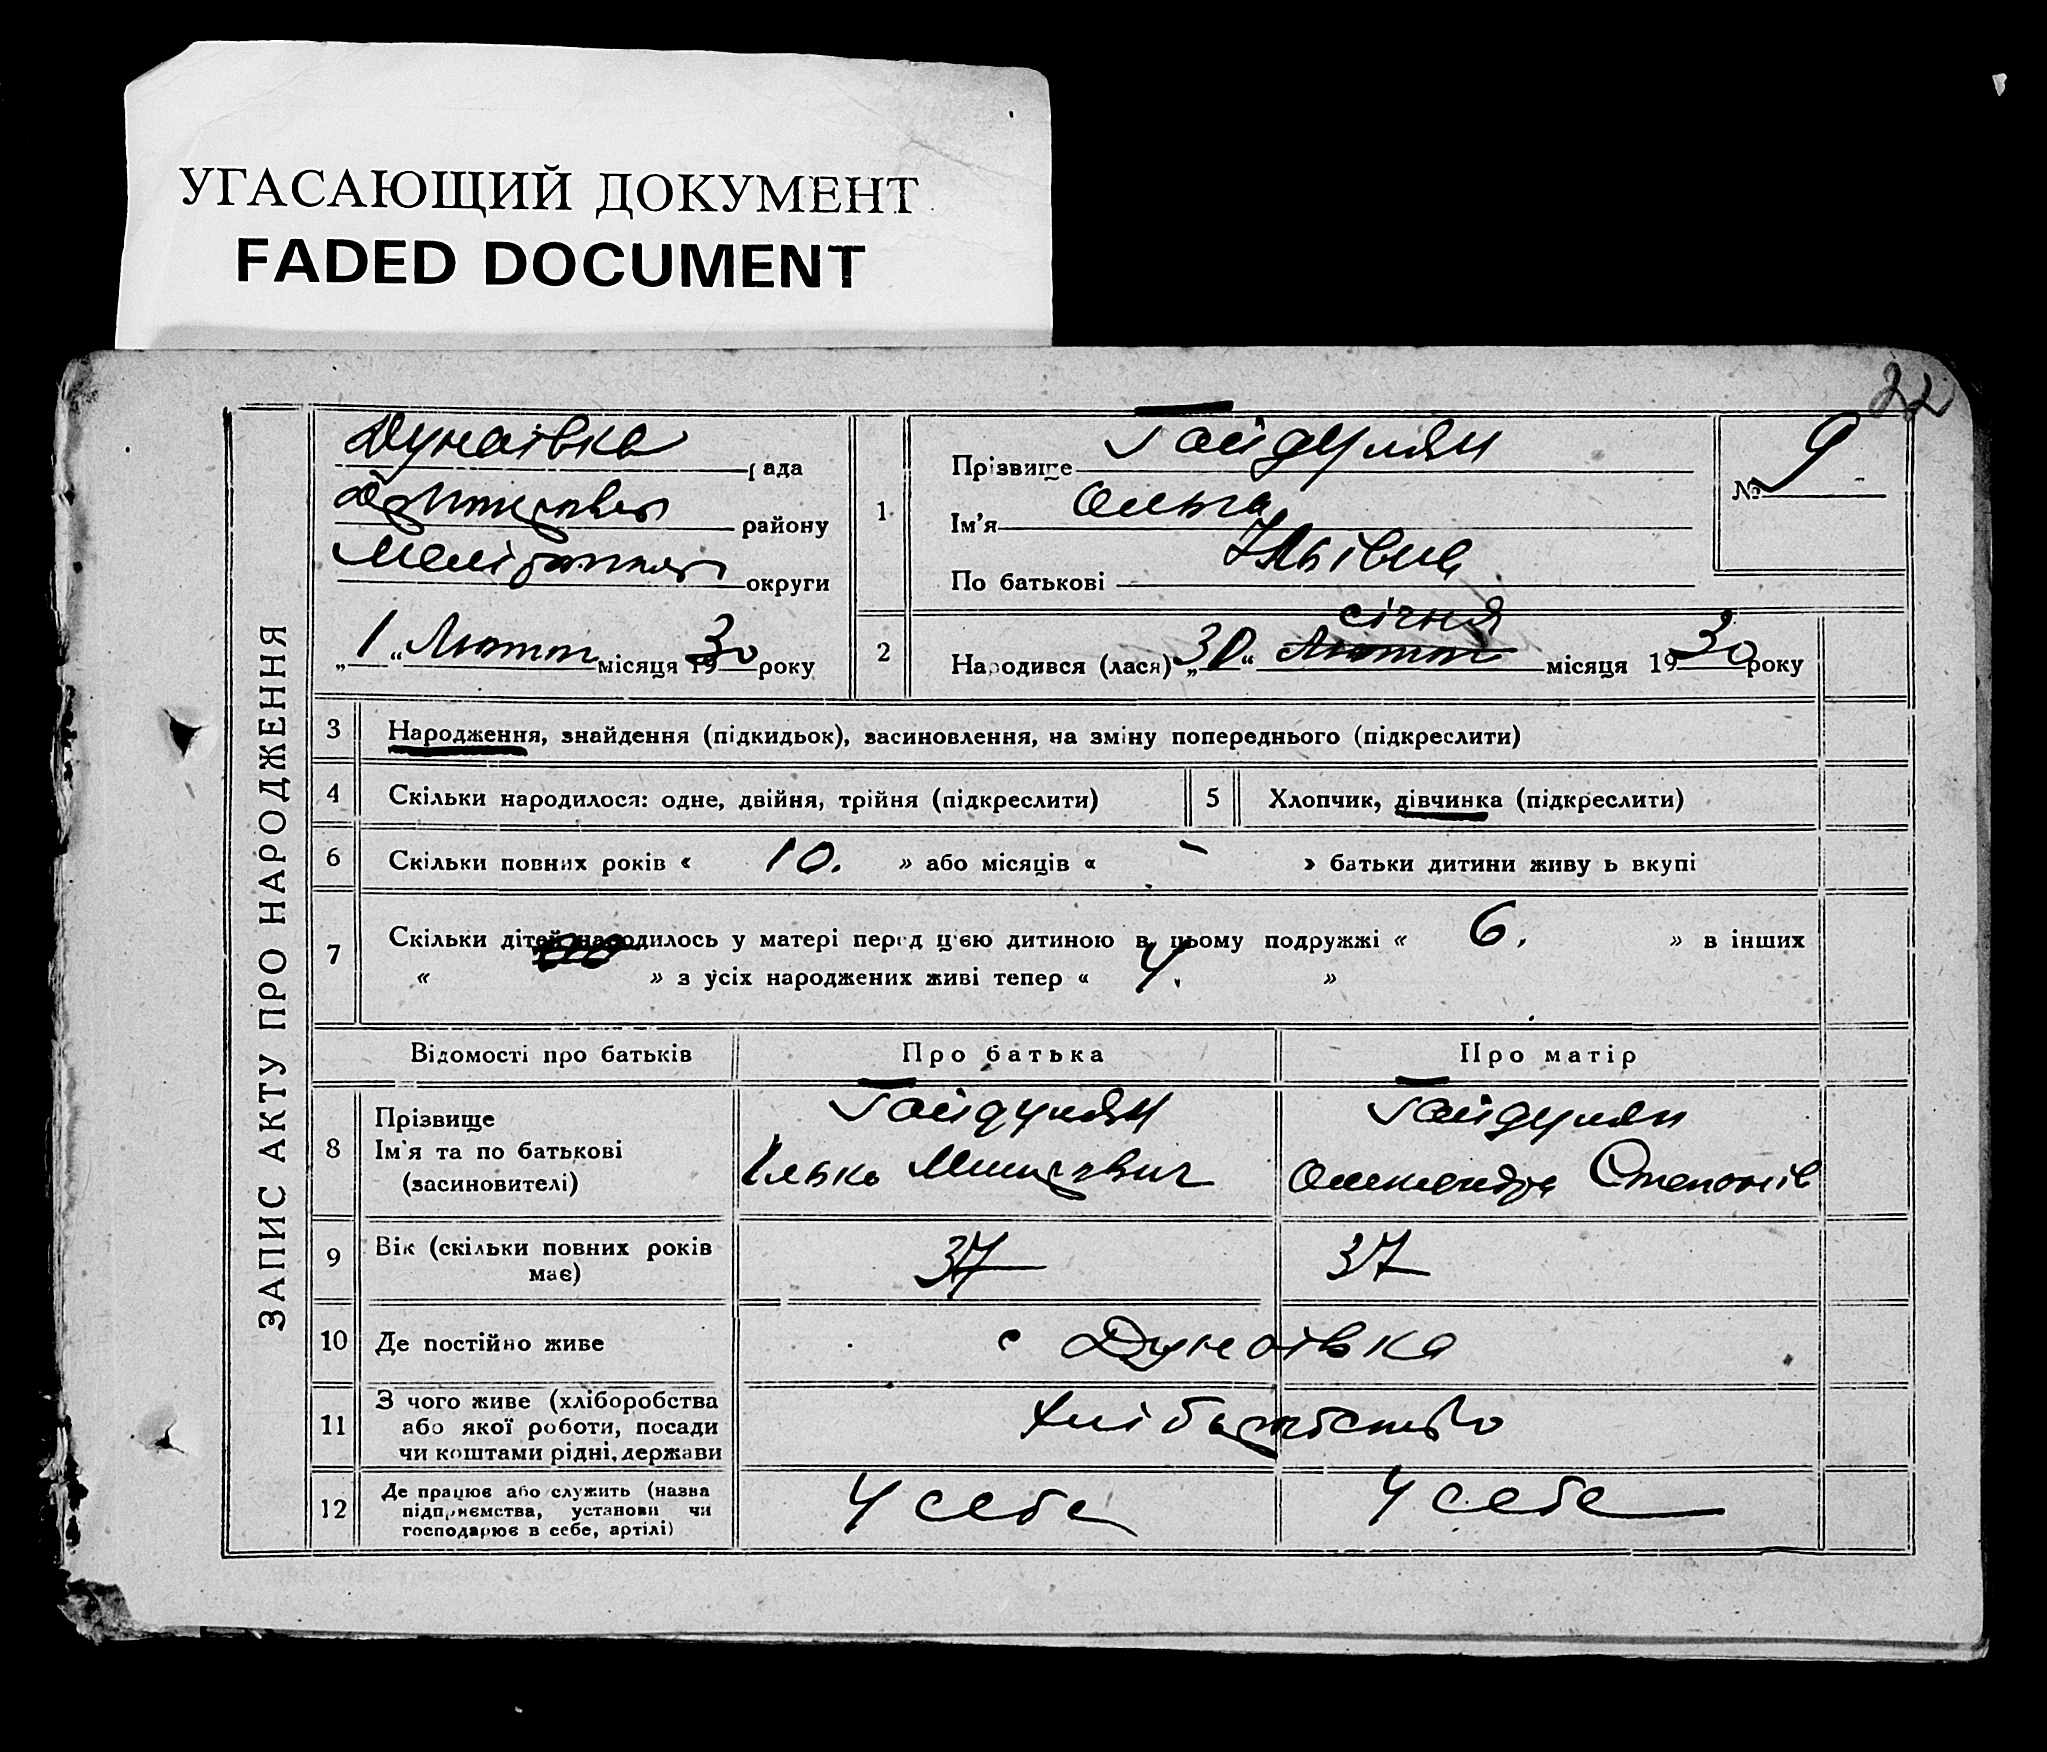 УГАСАЮЩИЙ ДОКУМЕНТ
FADED DOCUMENT
22
ЗАПИС АКТУ ПРО НАРОДЖЕННЯ
Дунаівка рада
району
округи
„1“ місяця 1930 року
1
Прізвище Гайдулян
Ім'я Ольга
По батькові Ільівна
№ 9
2
січня
Народився (лася) „30“ місяця 1930 року
3 Народження, знайдення (підкидьок), засиновлення, на зміну попереднього (підкреслити)
4 Скільки народилося: одне, двійня, трійня (підкреслити)
5 Хлопчик, дівчинка (підкреслити)
6 Скільки повних років « 10. » або місяців « - » батьки дитини живу ь вкупі
7 Скільки дітей народилось у матері перед цією дитиною в цьому подружжі « 6. » в інших
« » з усіх народжених живі тепер « 4. »
Відомості про батьків Про батька Про матір
8 Прізвище Гайдулян Гайдулян
Ім'я та по батькові Ілько Степанів
(засиновителі)
9 Вік (скільки повних років має) 37 37
10 Де постійно живе с Дунаівка
11 З чого живе (хліборобства
або якої роботи, посади
чи коштами рідні, держави
12 Де працює або служить (назва
підприємства, установи чи
господарює в себе, артілі)
у себе у себе